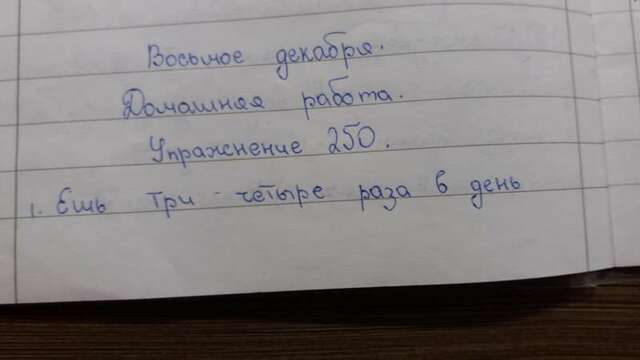 Восьмое декабря.
Домашняя работа.
Упражнение 250.
1. Ешь три - четыре раза в день